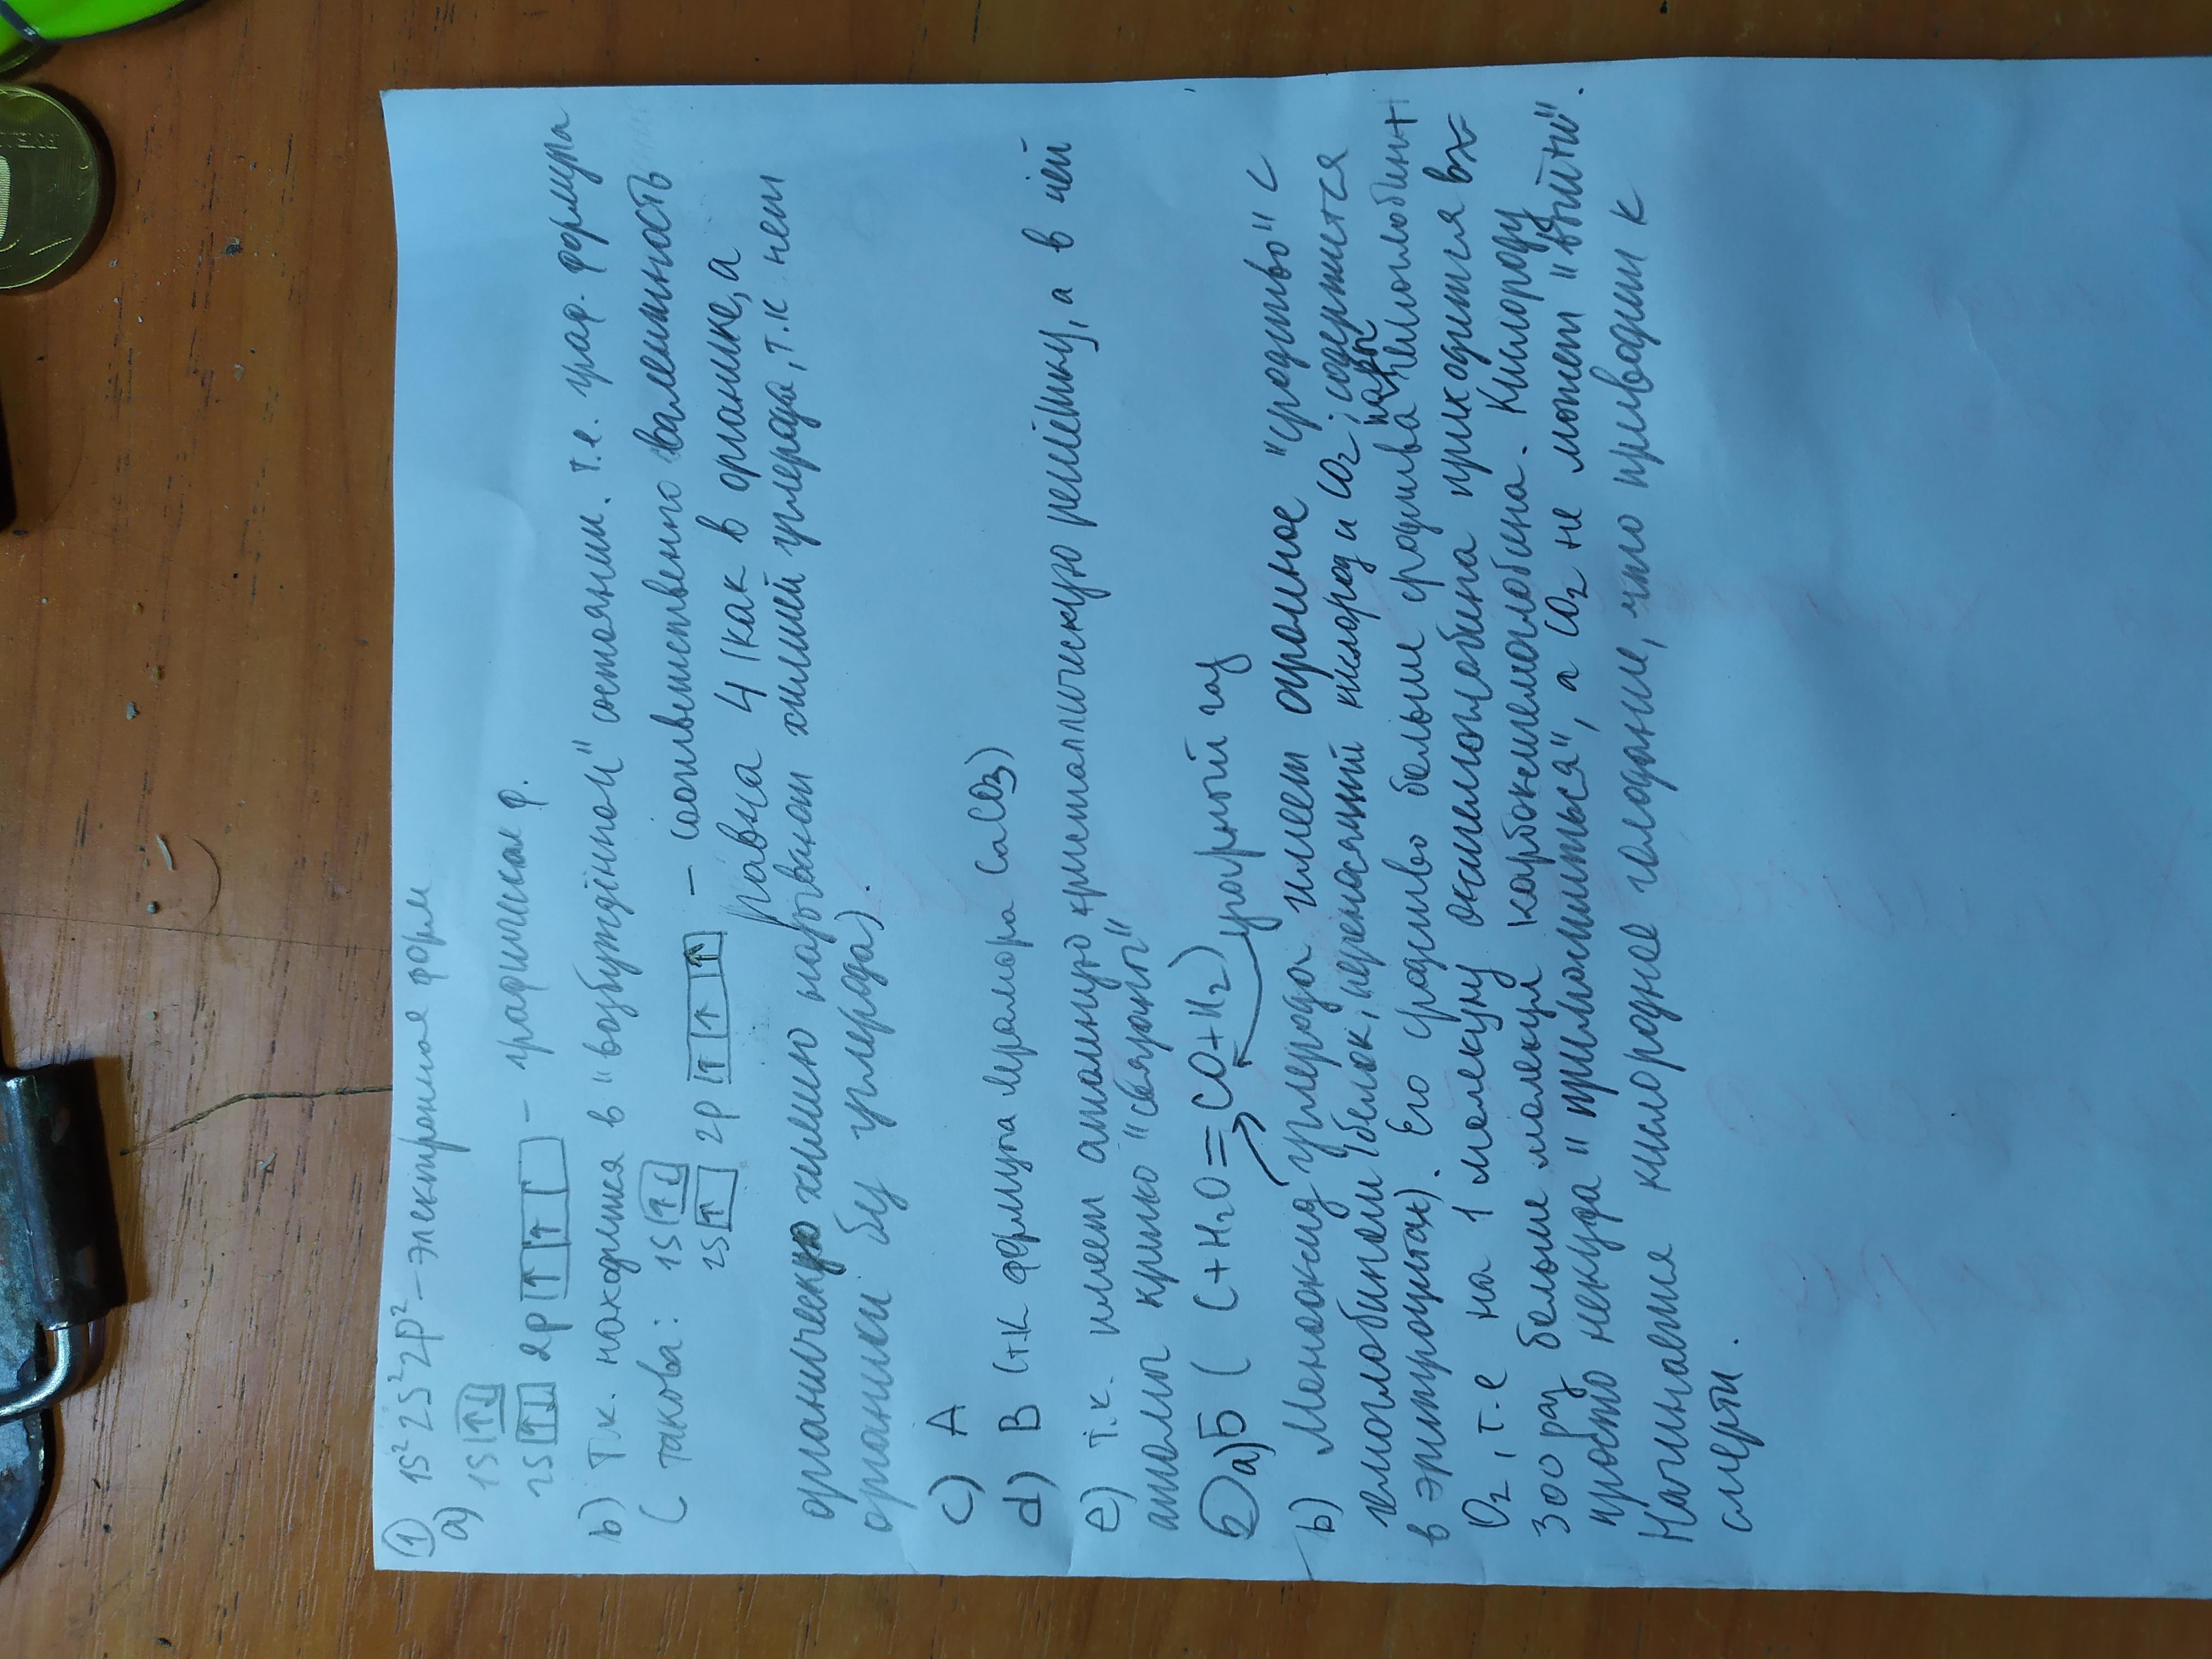 ① 1S² 2S² 2P² – электронная форм
a) 1S [↑↓]
2S [↑↓] 2P [↑][↑][ ] – графическая ф.
b) Т.к. находится в "возбуждённом" состоянии. т.е. граф. формула
( такова: 1S [↑↓]
2S [↑] 2P [↑][↑][↑] – соответственно валентность
равна 4 (как в органике, а
органическую химию называют химией углерода, т.к нет
органики без углерода).
c) A
d) B (т.к формула мрамора CaCO₃)
e) т.к. имеет атомную кристаллическую решётку, а в ней
атомы крепко "связаны"
② a) Б ( C + H₂O = CO + H₂) угарный газ
b) Монооксид углерода имеет огромное "сродство" с
гемоглобином (белок, переносящий кислород и CO₂; содержится
в эритроцитах). Его сродство больше сродства пары гемоглобин +
O₂, т.е на 1 молекулу оксигемоглобина приходится в
300 раз больше молекул карбоксигемоглобина. Кислороду
просто некуда "приклеиться", а CO₂ не может "выйти".
Начинается кислородное голодание, что приводит к
смерти.